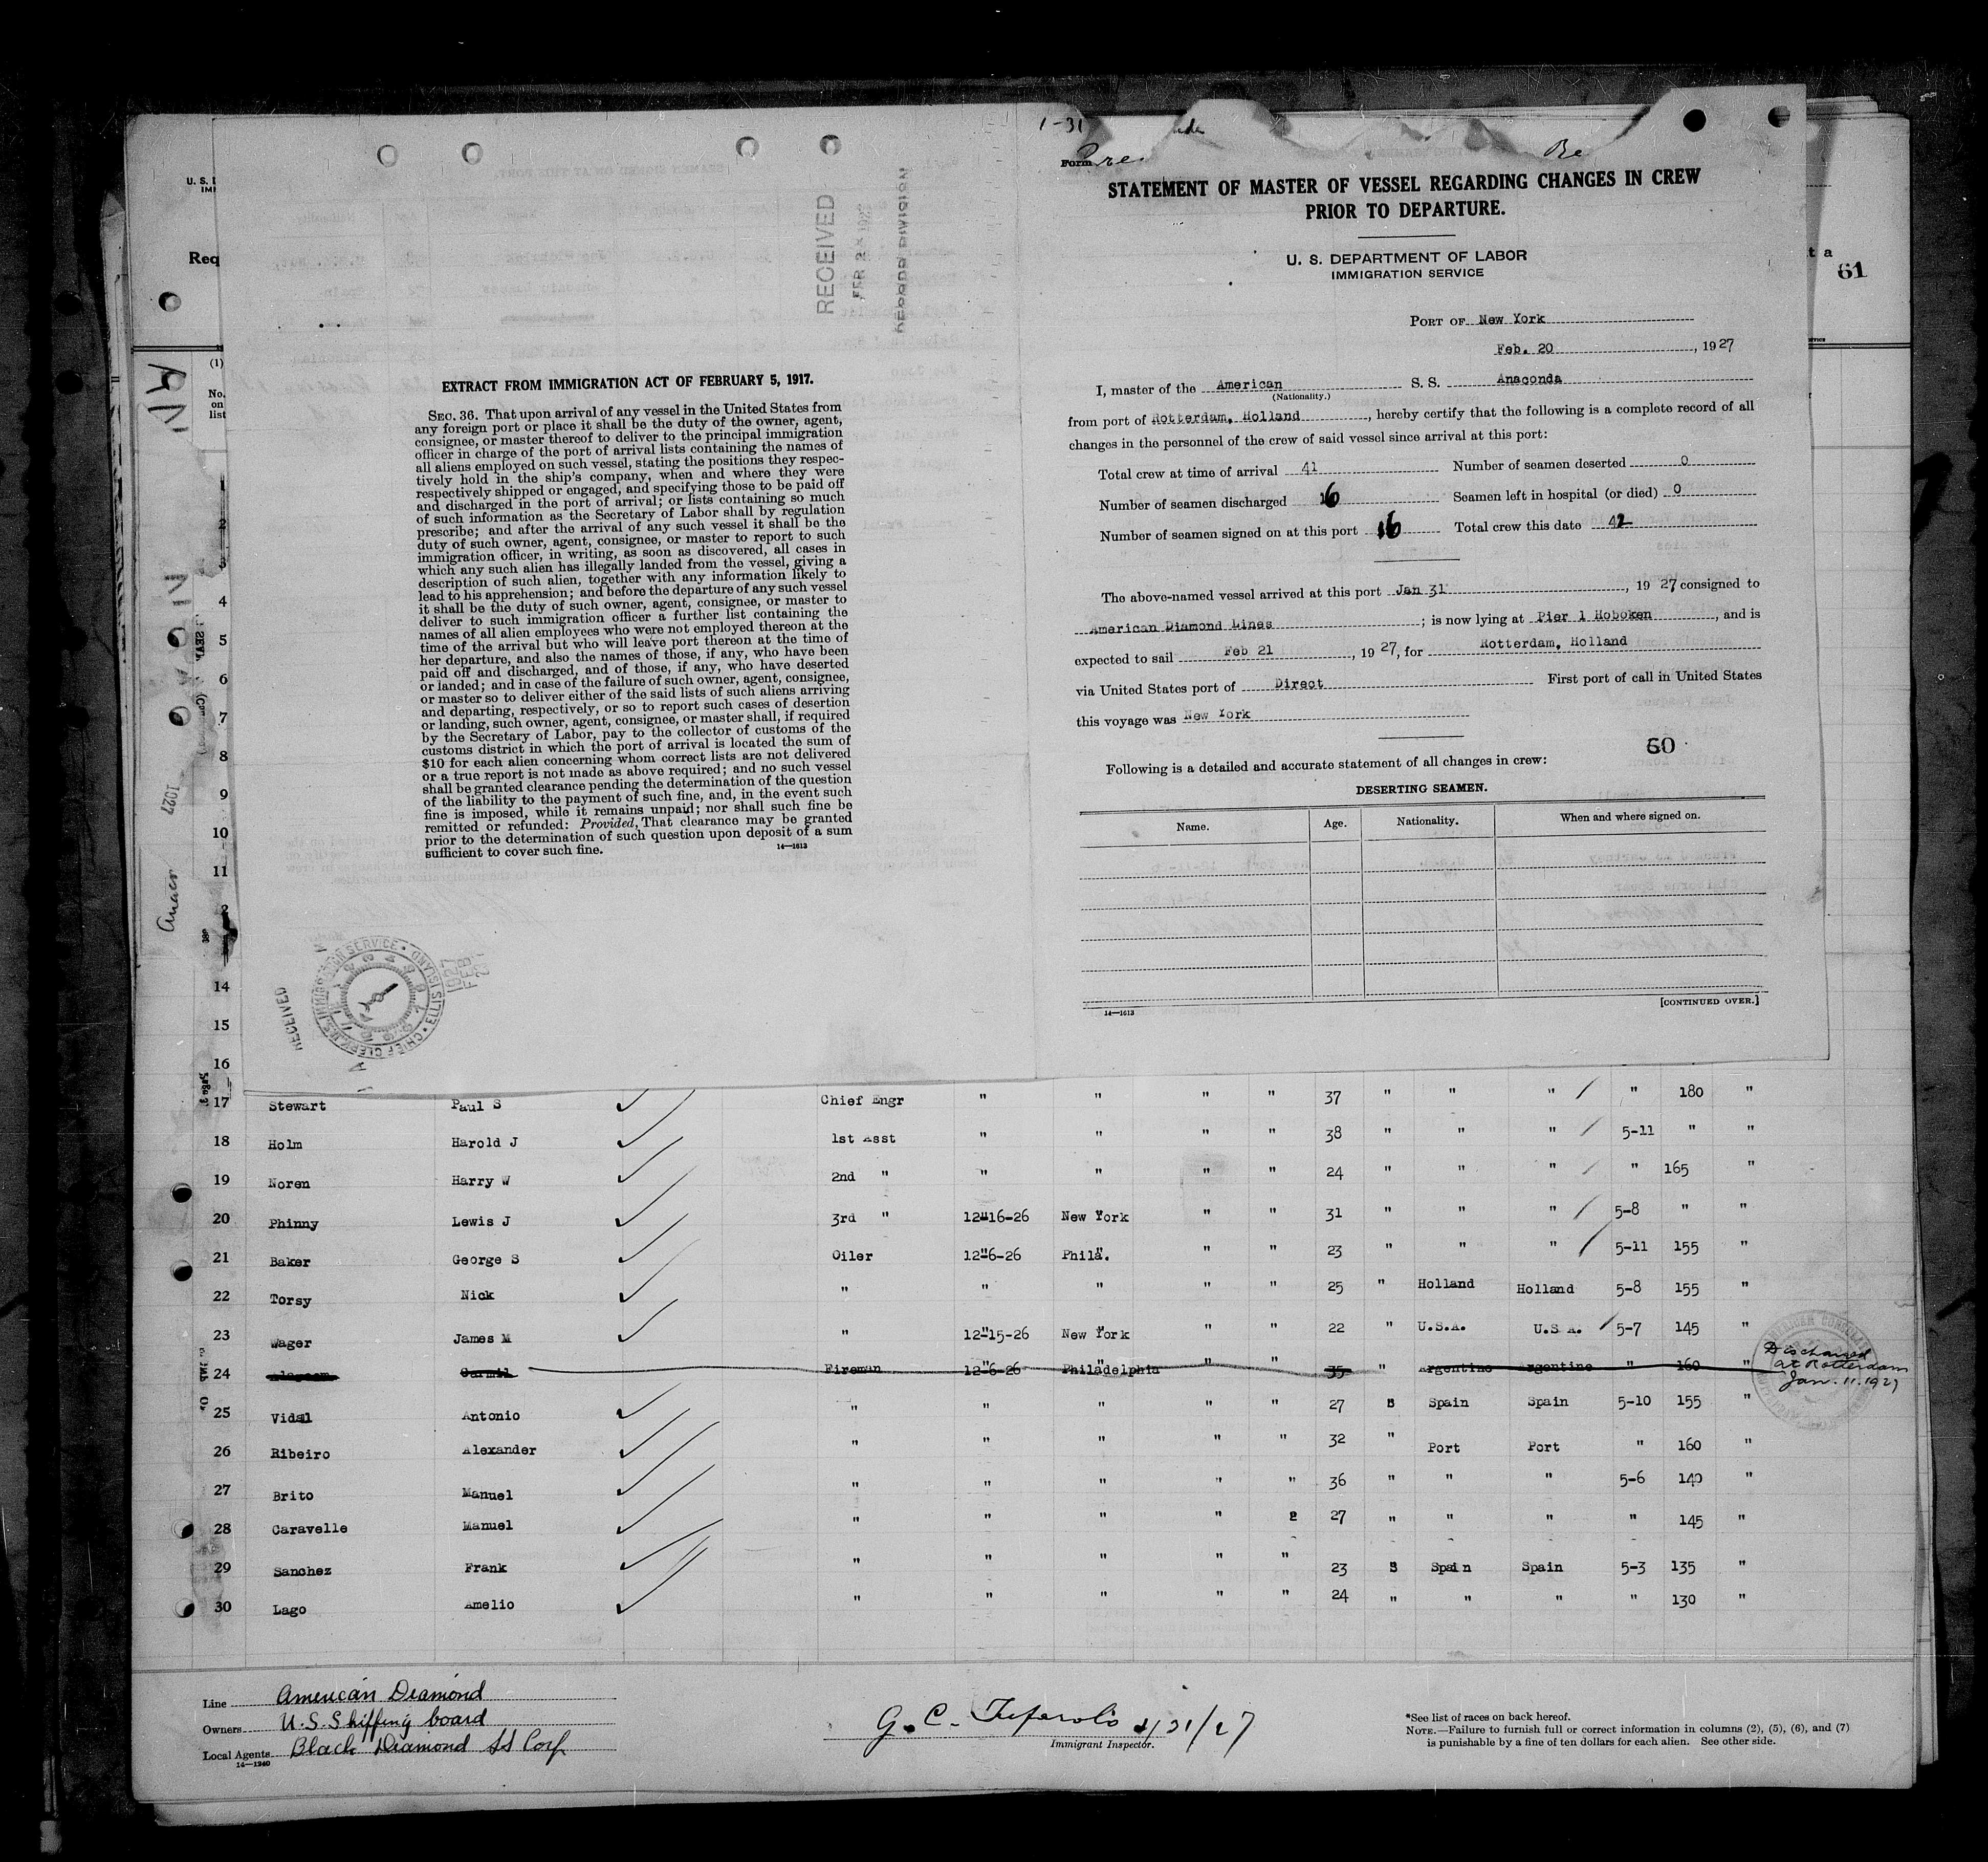 U. S. D
IMM
Req
(1)
No.
on
list
RECEIVED
FEB 2 1927
RECORD DIVISION
EXTRACT FROM IMMIGRATION ACT OF FEBRUARY 5, 1917.
SEC. 36. That upon arrival of any vessel in the United States from
any foreign port or place it shall be the duty of the owner, agent,
consignee, or master thereof to deliver to the principal immigration
officer in charge of the port of arrival lists containing the names of
all aliens employed on such vessel, stating the positions they respec-
tively hold in the ship's company, when and where they were
respectively shipped or engaged, and specifying those to be paid off
and discharged in the port of arrival; or lists containing so much
of such information as the Secretary of Labor shall by regulation
prescribe; and after the arrival of any such vessel it shall be the
duty of such owner, agent, consignee, or master to report to such
immigration officer, in writing, as soon as discovered, all cases in
which any such alien has illegally landed from the vessel, giving a
description of such alien, together with any information likely to
lead to his apprehension; and before the departure of any such vessel
it shall be the duty of such owner, agent, consignee, or master to
deliver to such immigration officer a further list containing the
names of all alien employees who were not employed thereon at the
time of the arrival but who will leave port thereon at the time of
her departure, and also the names of those, if any, who have been
paid off and discharged, and of those, if any, who have deserted
or landed; and in case of the failure of such owner, agent, consignee,
or master so to deliver either of the said lists of such aliens arriving
and departing, respectively, or so to report such cases of desertion
or landing, such owner, agent, consignee, or master shall, if required
by the Secretary of Labor, pay to the collector of customs of the
customs district in which the port of arrival is located the sum of
$10 for each alien concerning whom correct lists are not delivered
or a true report is not made as above required; and no such vessel
shall be granted clearance pending the determination of the question
of the liability to the payment of such fine, and, in the event such
fine is imposed, while it remains unpaid; nor shall such fine be
remitted or refunded: Provided, That clearance may be granted
prior to the determination of such question upon deposit of a sum
sufficient to cover such fine.
14—1613
RECEIVED
U.S. IMMIGRATION SERVICE • ELLIS ISLAND • CHIEF CLERK
1927 FEB
1-31
Form
STATEMENT OF MASTER OF VESSEL REGARDING CHANGES IN CREW
PRIOR TO DEPARTURE.
U. S. DEPARTMENT OF LABOR
IMMIGRATION SERVICE
61
PORT OF New York
Feb. 20, 1927
I, master of the American S. S. Anaconda
(Nationality.)
from port of Rotterdam, Holland, hereby certify that the following is a complete record of all
changes in the personnel of the crew of said vessel since arrival at this port:
Total crew at time of arrival 41 Number of seamen deserted 0
Number of seamen discharged 16 Seamen left in hospital (or died) 0
Number of seamen signed on at this port 16 Total crew this date 42
The above-named vessel arrived at this port Jan 31, 1927 consigned to
American Diamond Lines; is now lying at Pier 1 Hoboken, and is
expected to sail Feb 21, 1927, for Rotterdam, Holland
via United States port of Direct First port of call in United States
this voyage was New York
60
Following is a detailed and accurate statement of all changes in crew:
DESERTING SEAMEN.
Name. Age. Nationality. When and where signed on.
14—1613
[CONTINUED OVER.]
1
2
3
4
5
6
7
8
9
10
11
14
15
16
17 Stewart Paul S Chief Engr " " " " 37 " " " " 180 "
18 Holm Harold J 1st Asst " " " " 38 " " " 5-11 " "
19 Noren Harry W 2nd " " " " " 24 " " " " 165 "
20 Phinny Lewis J 3rd " 12-16-26 New York " " 31 " " " 5-8 " "
21 Baker George S Oiler 12-6-26 Phila. " " 23 " " " 5-11 155 "
22 Torsy Nick " " " " " 25 " Holland Holland 5-8 155 "
23 Wager James M " 12-15-26 New York " " 22 " U.S.A. U.S A. 5-7 145 "
24 Carmil Fireman 12-6-26 Philadelphia " " 35 " Argentine Argentine " 160 " Discharged at Rotterdam Jan. 11. 1927
25 Vidal Antonio " " " " " 27 " Spain Spain 5-10 155 "
26 Ribeiro Alexander " " " " " 32 " Port Port " 160 "
27 Brito Manuel " " " " " 36 " " " 5-6 140 "
28 Caravelle Manuel " " " " 2 27 " " " " 145 "
29 Sanchez Frank " " " " " 23 " Spain Spain 5-3 135 "
30 Lago Amelio " " " " " 24 " " " " 130 "
Line American Diamond
Owners U.S. Shipping board
Local Agents Black Diamond SS Corp
14—1240
G. C. 1/31/27
Immigrant Inspector.
*See list of races on back hereof.
NOTE.—Failure to furnish full or correct information in columns (2), (5), (6), and (7)
is punishable by a fine of ten dollars for each alien. See other side.